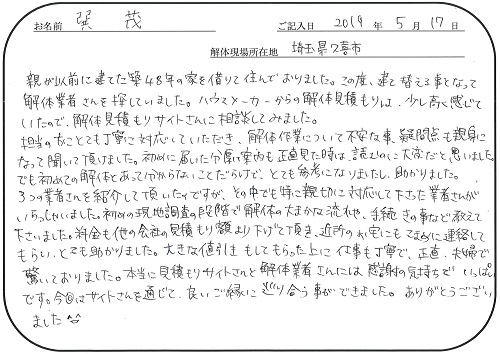 お名前 巽 茂 ご記入日 2019年 5月 17日
解体現場所在地 埼玉県久喜市
親が以前に建てた築48年の家を借りて住んでおりました。この度、建て替える事となって
解体業者さんを探していました。ハウスメーカーからの解体見積もりは、少し高く感じて
いたので、解体見積もりサイトさんに相談してみました。
担当の方にとても丁寧に対応していただき、解体作業について不安な事、疑問点も親身に
なって聞いて頂けました。初めに届いた分厚い案内も正直見た時は、読むのに大変だと思いました。
でも初めての解体とあって分からないことだらけで、とても参考になりましたし、助かりました。
3つの業者さんを紹介して頂いたのですが、その中でも特に親切に対応して下さった業者さんが
いらっしゃいました。初めの現地調査の段階で解体の大まかな流れや、手続きの事など教えて
下さいました。料金も他の会社の見積もり額より下げて頂き、近所のお宅にもこまめに連絡して
もらい、とても助かりました。大きな値引きもしてもらった上に仕事も丁寧で、正直、夫婦で
驚いておりました。本当に見積もりサイトさんと解体業者さんには感謝の気持ちでいっぱい
です。今回はサイトさんを通じて、良いご縁に巡り合う事ができました。ありがとうござい
ました^^